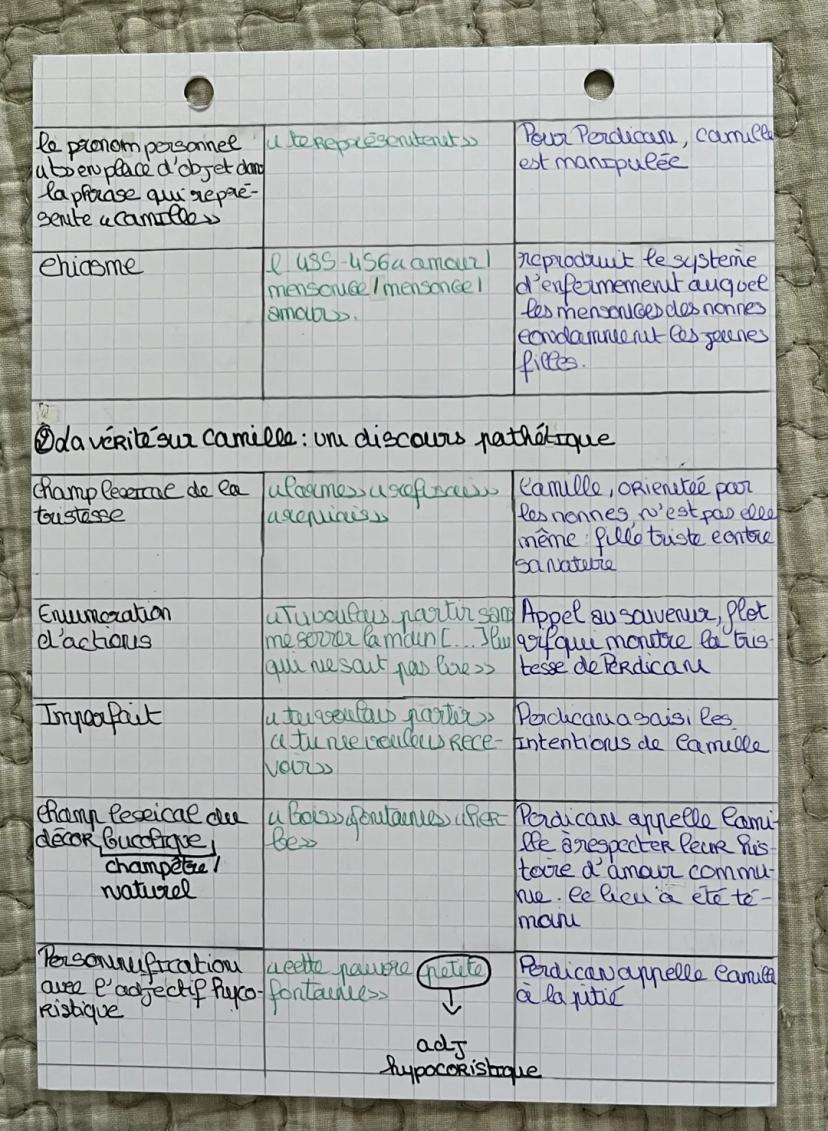 le pronom personnel
« t » en place d'objet dans
la phrase qui repré-
sente « Camille »
« te représentent »
Pour Perdican, Camille
est manipulée
Chiasme
l 455-456 « amour /
mensonge / mensonge /
amour ».
reproduit le système
d'enfermement auquel
les mensonges des nonnes
condamnent les jeunes
filles.
② La vérité sur Camille : un discours pathétique
Champ lexical de la
tristesse
« larmes »
Camille, orientée par
les nonnes, n'est pas elle
même : fille triste contre
sa nature
Enumération
d'actions
« Tu voulais partir sans
me serrer la main [...]
qui ne sait pas lire »
Appel au souvenir, flot
vif qui montre la tris-
tesse de Perdican
Imparfait
« tu voulais partir »
« tu ne voulais rece-
voir »
Perdican a saisi les
intentions de Camille
Champ lexical du
décor bucolique,
champêtre /
naturel
« bois » « fontaines » « her-
be »
Perdican appelle Cami-
lle à respecter leur his-
toire d'amour commu-
ne. Ce lieu a été té-
moin
Personnification
avec l'adjectif hyco-
ristique
« cette pauvre petite
fontaine »
adj
hypocoristique
Perdican appelle Camille
à la pitié